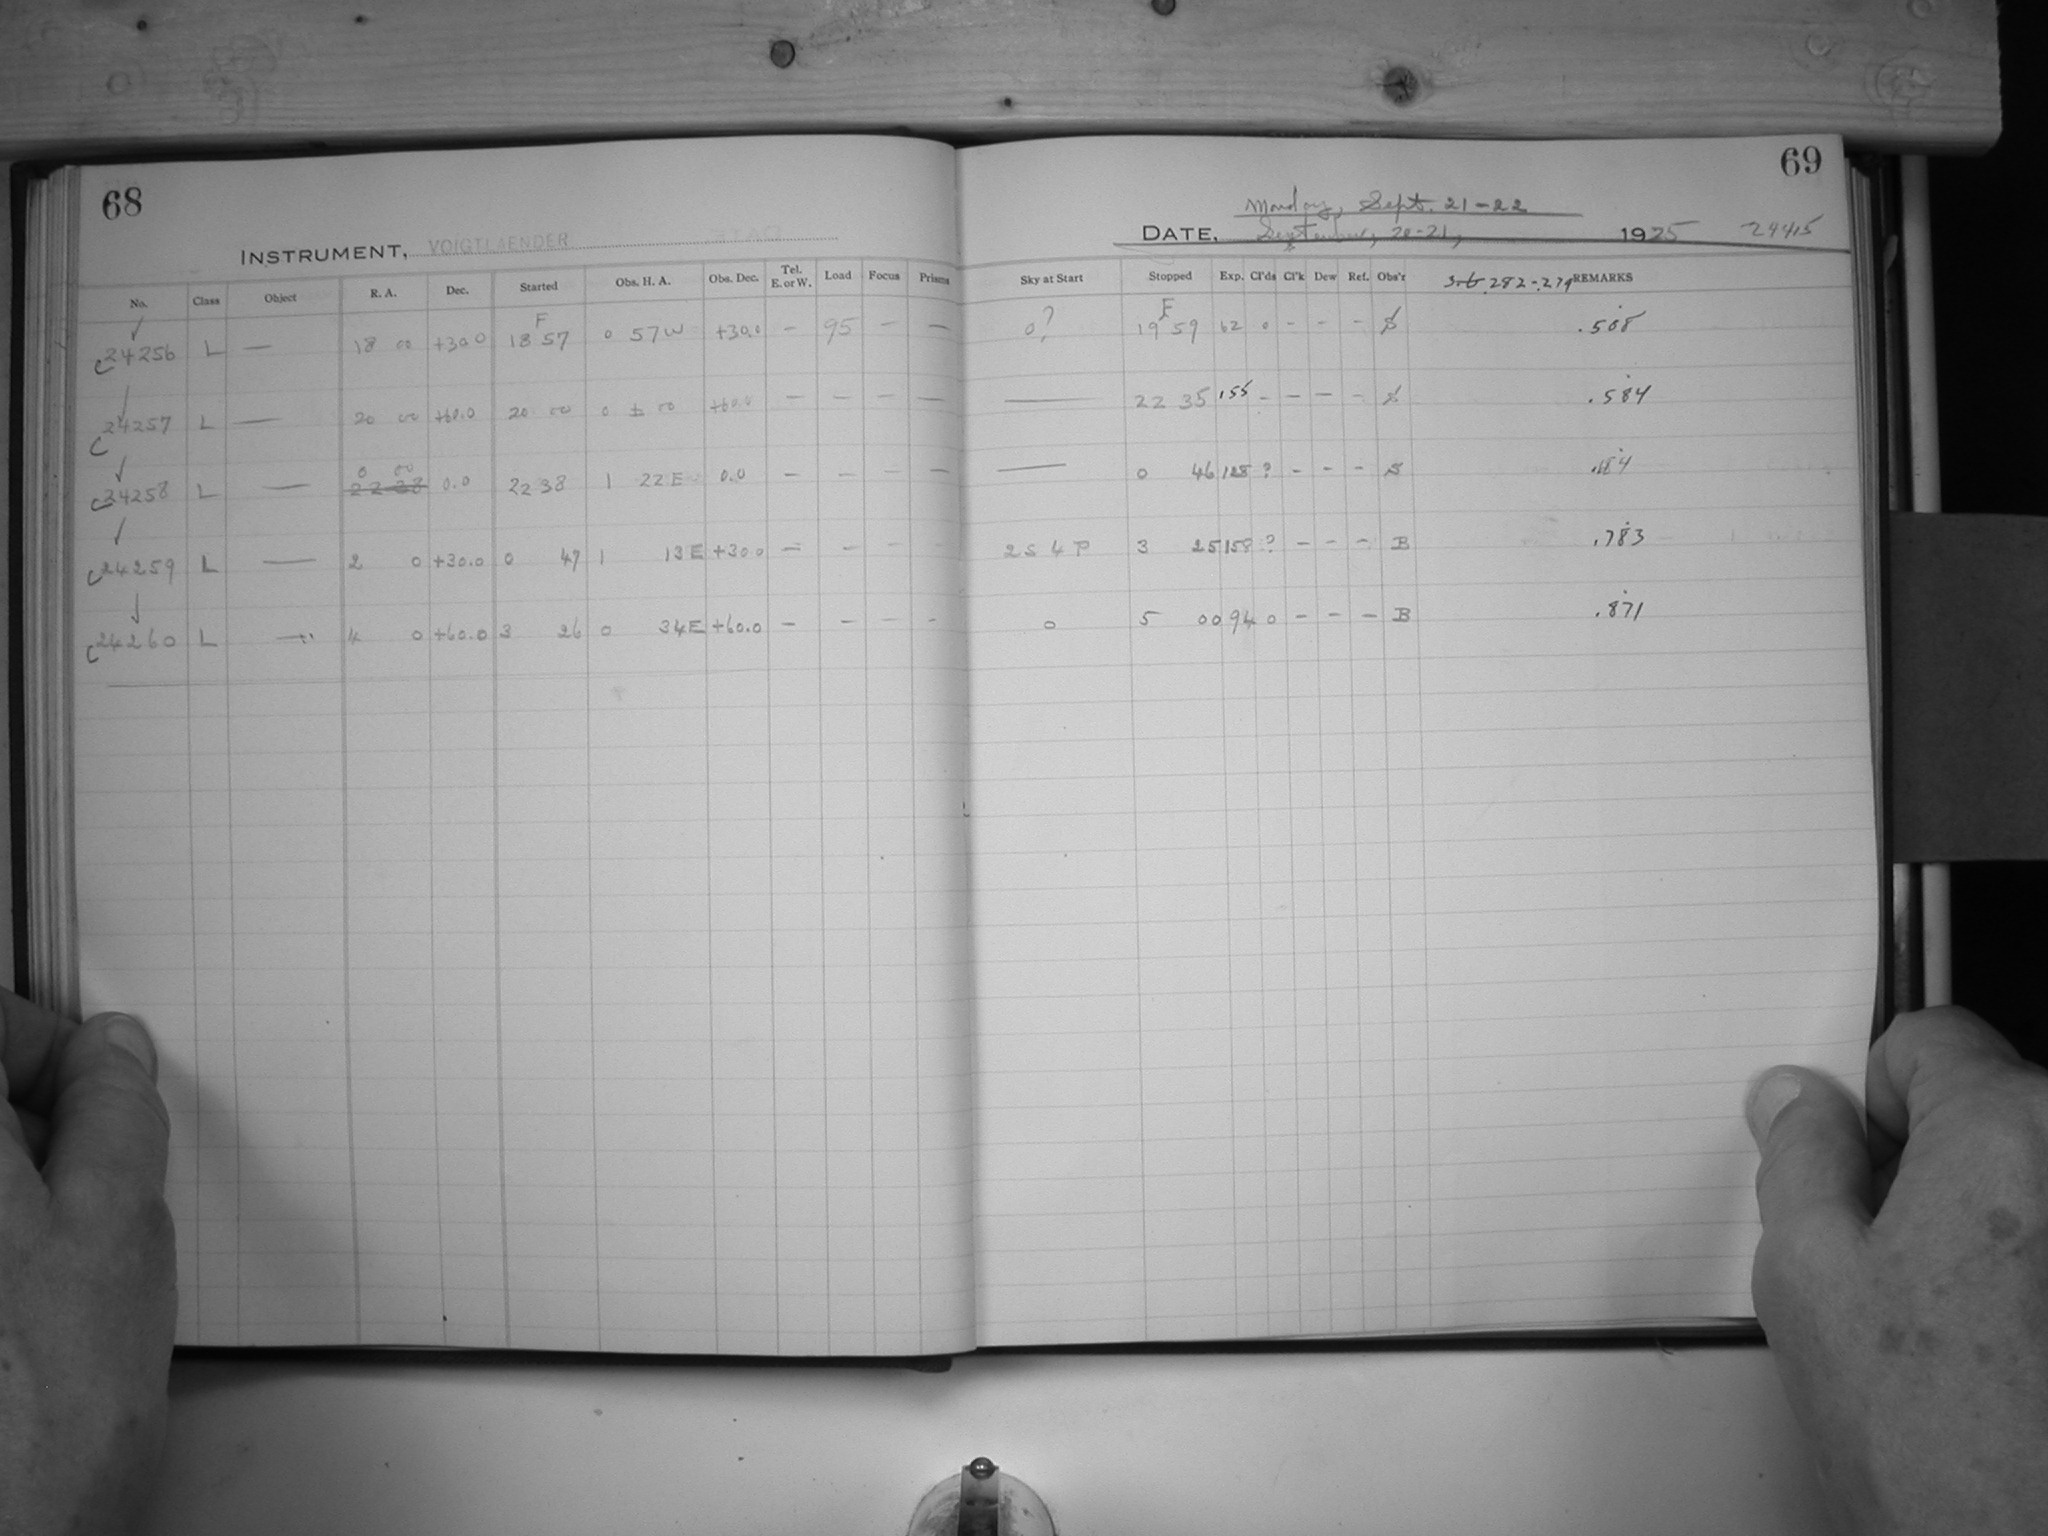 68
INSTRUMENT, VOIGTLAENDER
No. Class Object R. A. Dec. Started Obs. H. A. Obs. Dec. Tel. E. or W. Load Focus Prisms
F
c24256 L — 18 00 +30.0 18 57 0 57 W +30.0 — 95 — —
c24257 L — 20 00 +60.0 20 00 0 ± 00 +60.0 — — — —
0 00
c24258 L — 22 38 0.0 22 38 1 22 E 0.0 — — — —
c24259 L — 2 0 +30.0 0 47 1 13 E +30.0 — — — —
c24260 L — 4 0 +60.0 3 26 0 34 E +60.0 — — — —
69
Monday, Sept. 21-22
DATE, September, 20-21, 1925 24415
Sky at Start Stopped Exp. Cl'ds Cl'k Dew Ref. Obs'r 282-.279 REMARKS
F
0? 19 59 62 0 — — — .508
— 22 35 155 — — — — .584
— 0 46 128 ? — — — S
2 S 4 P 3 25 158 ? — — — B .783
0 5 00 94 0 — — — B .871